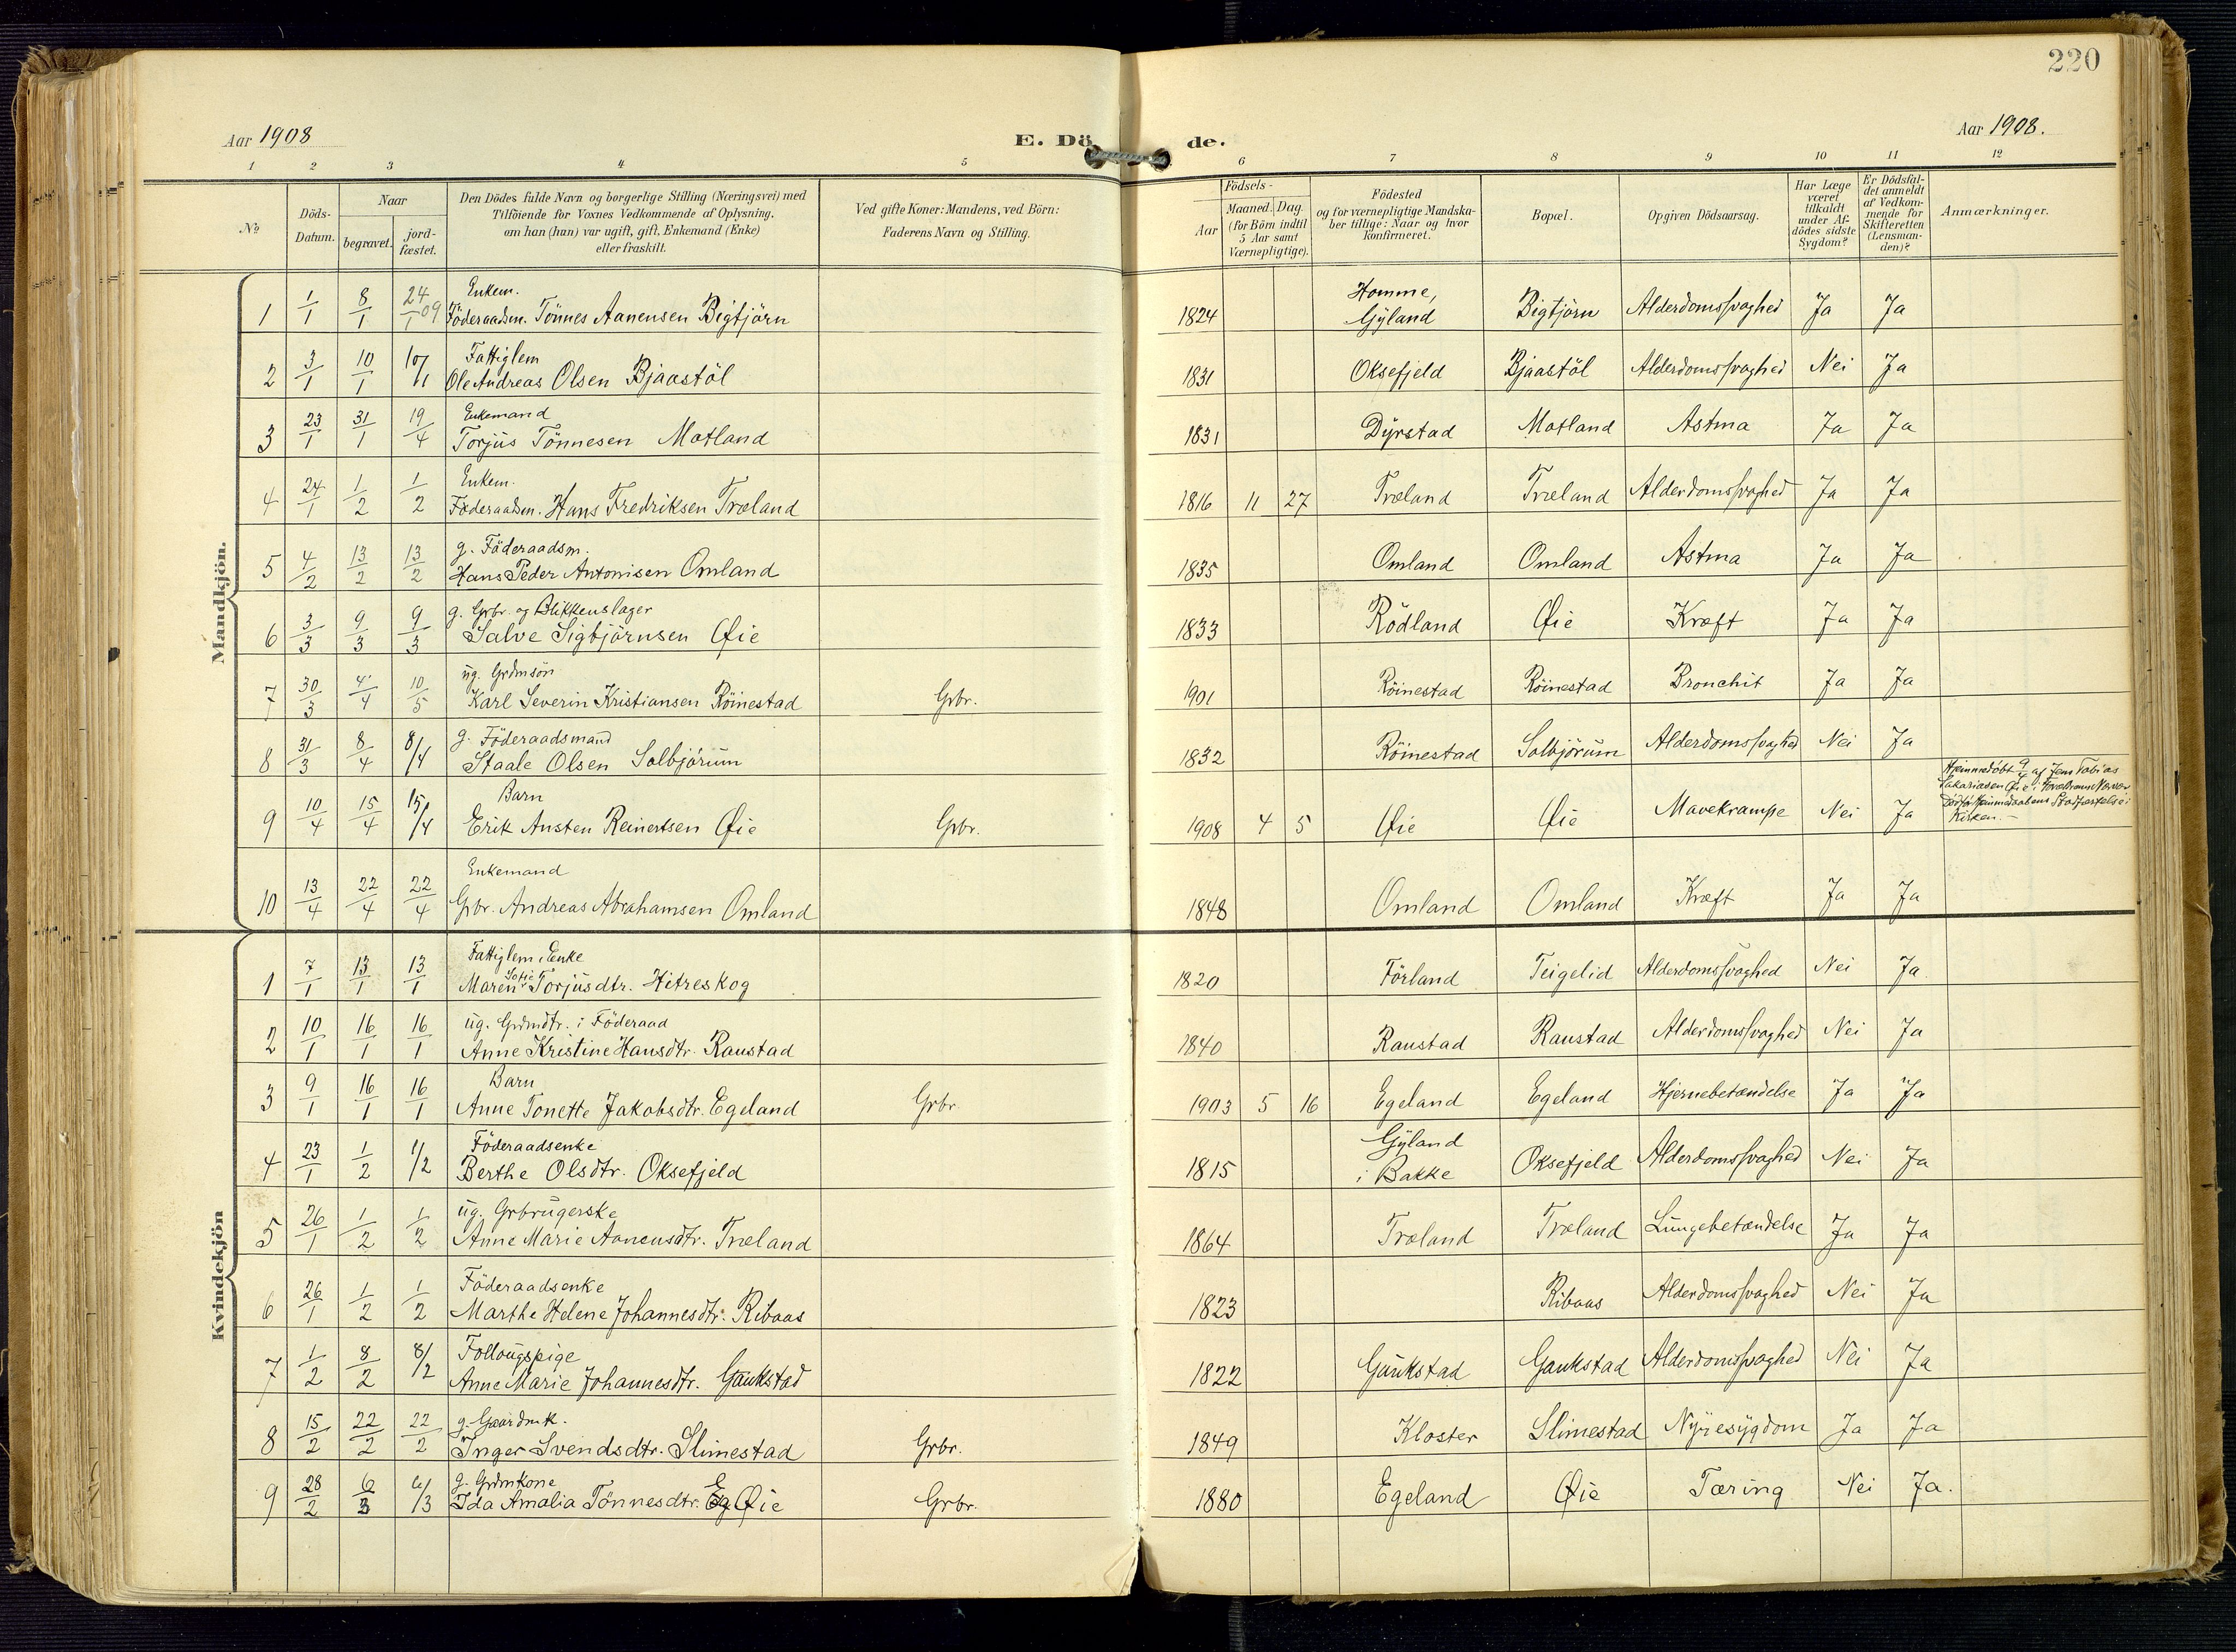 220
Aar 1908
E. Dö de.
Aar 1908.
1 2 3 4 5 6 7 8 9 10 11 12
№
Döds-
Datum.
Naar
begravet.
jord-
fæstet.
Den Dödes fulde Navn og borgerlige Stilling (Næringsvei) med
Tilföiende for Voxnes Vedkommende af Oplysning.
om han (hun) var ugift, gift, Enkemand (Enke)
eller fraskilt.
Ved gifte Koner: Mandens, ved Börn:
Faderens Navn og Stilling.
Födsels-
Aar
Maaned. Dag
(for Börn indtil
5 Aar samt
Værnepligtige).
Födested
og for værnepligtige Mandska-
ber tillige: Naar og hvor
konfirmeret.
Bopæl.
Opgiven Dödsaarsag.
Har Læge
været
tilkaldt
under Af-
dödes sidste
Sygdom?
Er Dödsfal-
det anmeldt
af Vedkom-
mende for
Skifteretten
(Lensman-
den)?
Anmærkninger.
Mandkjön.
Enkem. Homme,
1 1/1 8/1 24/1 09 Föderaadsm. Tönnes Aanensen Bigtjörn 1824 Gyland Bigtjörn Alderdomssvaghed Ja Ja
Fattiglem
2 3/1 10/1 10/1 Ole Andreas Olsen Bjaastöl 1831 Oksefjeld Bjaastöl Alderdomssvaghed Nei Ja
Enkemand
3 23/1 31/1 19/4 Torjus Tönnesen Motland 1831 Dyrstad Motland Astma Ja Ja
Enkem.
4 24/1 1/2 1/2 Föderaadsm. Hans Fredriksen Træland 1816 11 27 Træland Træland Alderdomssvaghed Ja Ja
g. Föderaadsm.
5 4/2 13/2 13/2 Hans Peder Antonisen Omland 1835 Omland Omland Astma Ja Ja
g. Grbr. og Blikkenslager
6 3/3 9/3 9/3 Salve Sigbjörnsen Øie 1833 Rödland Øie Kræft Ja Ja
ug. Grdmsön
7 30/3 4/4 10/5 Karl Severin Kristiansen Röinestad Grbr. 1901 Röinestad Röinestad Bronchit Ja Ja
g. Föderaadsmand
8 31/3 8/4 8/4 Staale Olsen Solbjörum 1832 Röinestad Solbjörum Alderdomssvaghed Nei Ja
Barn
9 10/4 15/4 15/4 Erik Austen Reinertsen Øie Grbr. 1908 4 5 Øie Øie Mavekrampe Nei Ja
Hjemmedöbt 9/4 af Jens Tobias
Sakariasen Øie i Forældrenes Nærvær
Död för Hjemmedaabens Stadfæstelse i
Kirken.–
Enkemand
10 13/4 22/4 22/4 Grbr. Andreas Abrahamsen Omland 1848 Omland Omland Kræft Ja Ja
Kvindekjön
Fattiglem, Enke
1 7/1 13/1 13/1 Maren Sofie Torjusdtr. Hitreskog 1820 Förland Teigelid Alderdomssvaghed Nei Ja.
ug. Grdmdtr. i Föderaad
2 10/1 16/1 16/1 Anne Kristine Hansdtr. Raustad 1840 Raustad Raustad Alderdomssvaghed Nei Ja
Barn
3 9/1 16/1 16/1 Anne Tonette Jakobsdtr. Egeland Grbr. 1903 5 16 Egeland Egeland Hjernebetændelse Ja Ja
Föderaadsenke Gyland
4 23/1 1/2 1/2 Berthe Olsdtr. Oksefjeld 1815 i Bakke Oksefjeld Alderdomssvaghed Nei Ja
ug. Grbrugerske
5 26/1 1/2 1/2 Anne Marie Aanensdtr. Træland 1864 Træland Træland Lungebetændelse Ja Ja
Föderaadsenke
6 26/1 1/2 1/2 Marthe Helene Johannesdtr. Ribaas 1823 Ribaas Alderdomssvaghed Nei Ja
Follougspige
7 1/2 8/2 8/2 Anne Marie Johannesdtr. Gaukstad 1822 Gaukstad Gaukstad Alderdomssvaghed Nei Ja
g. Gaardmk.
8 15/2 22/2 22/2 Inger Svendsdtr. Slimestad Grbr. 1849 Kloster Slimestad Nyresygdom Ja Ja
g. Grdmkone
9 28/2 6/3 6/3 Ida Amalia Tönnesdtr. Eg Øie Grbr. 1880 Egeland Øie Tæring Nei Ja.